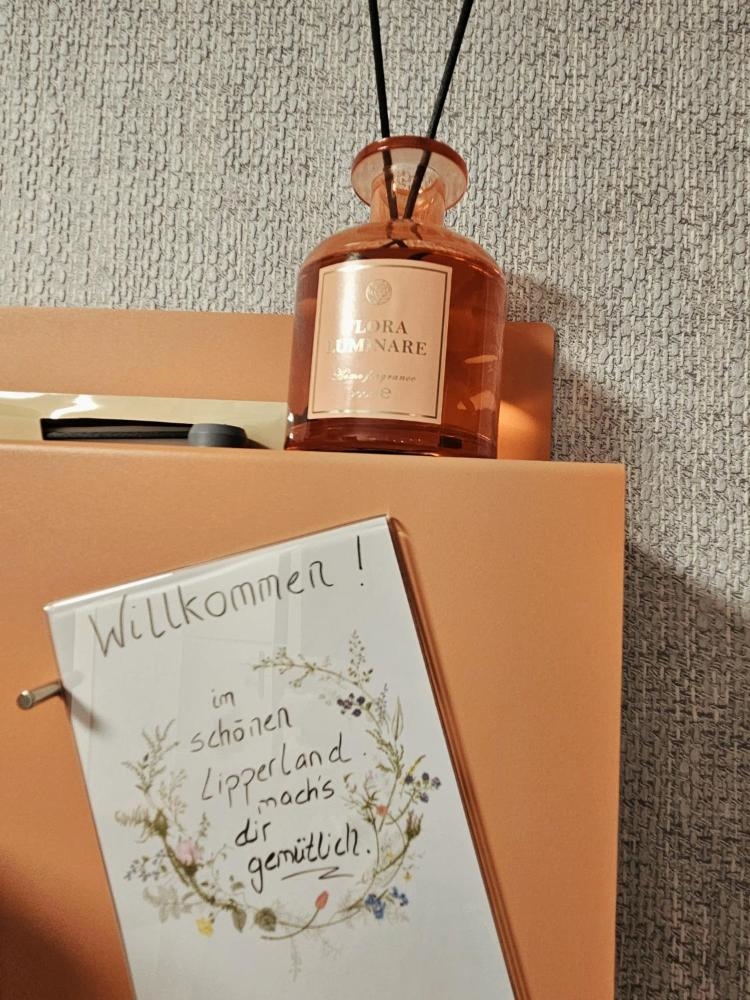 FLORA
LUMINARE
Home fragrance
Willkommen !
im
schönen
Lipperland.
mach's
dir
gemütlich.